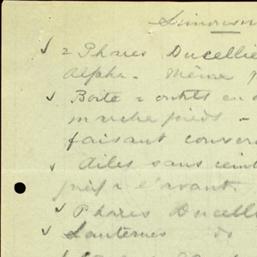 Limousin
2 Phares Ducellie
Alpha. Même
Boîte à outils en
marche pieds -
faisant couver
Ailes sans
jusqu'à l'avant.
Phares Ducelli
Lanternes do